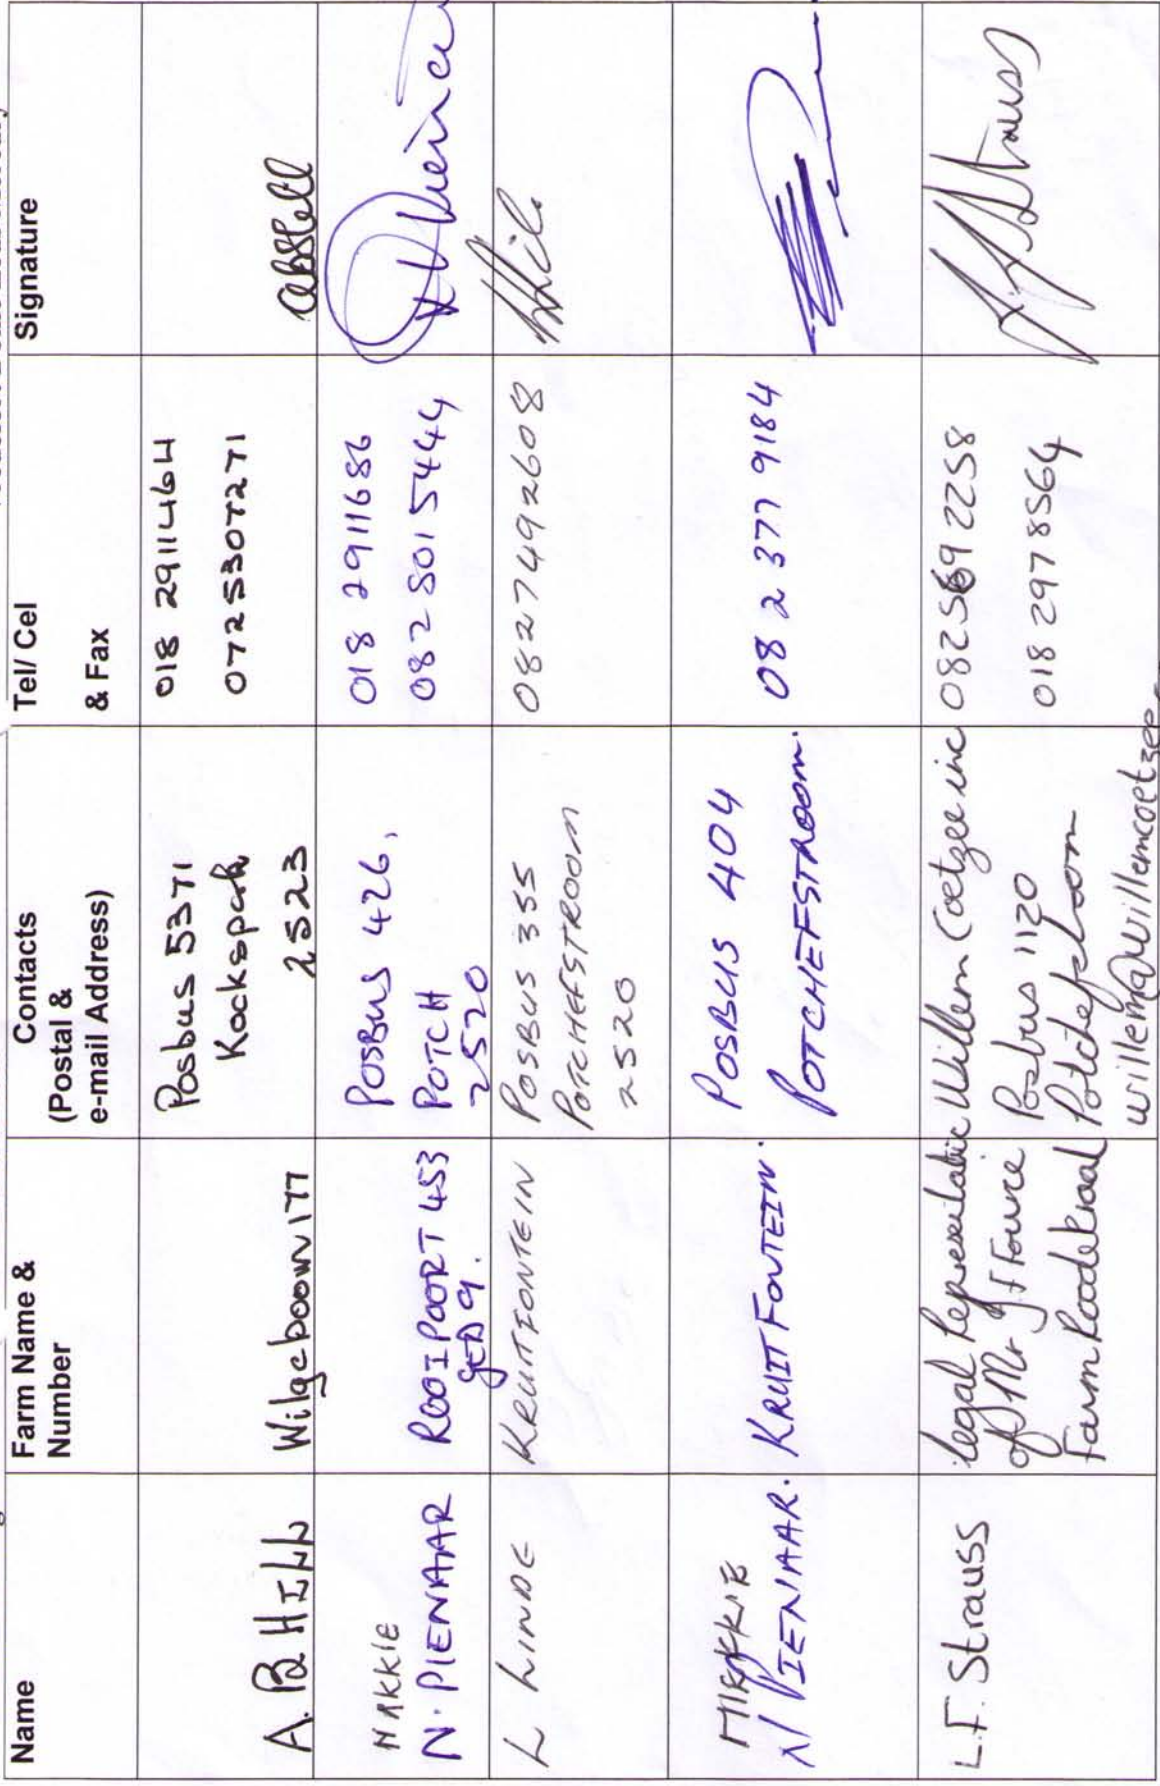 Name
Farm Name &
Number
Contacts
(Postal &
e-mail Address)
Tel/ Cel
& Fax
Signature
A. B HILL
Wilgeboom 177
Posbus 5371
Kockspark
2523
018 2911464
0725307271
NAKKIE
N. PIENAAR
ROOIPOORT 453
ged 9.
POSBUS 426,
POTCH
2520
018 2911686
082 801 5444
L LINDE
KRUITFONTEIN
POSBUS 355
POTCHEFSTROOM
2520
0827492608
N PIENAAR.
KRUITFONTEIN.
POSBUS 404
POTCHEFSTROOM.
082 377 9184
L.F. Strauss
legal Representative
of Mr J Fourie
Farm Roodekraal
Willem Coetzee inc
Posbus 1120
Potchefstroom
willem@willemcoetzee
018 297 8564